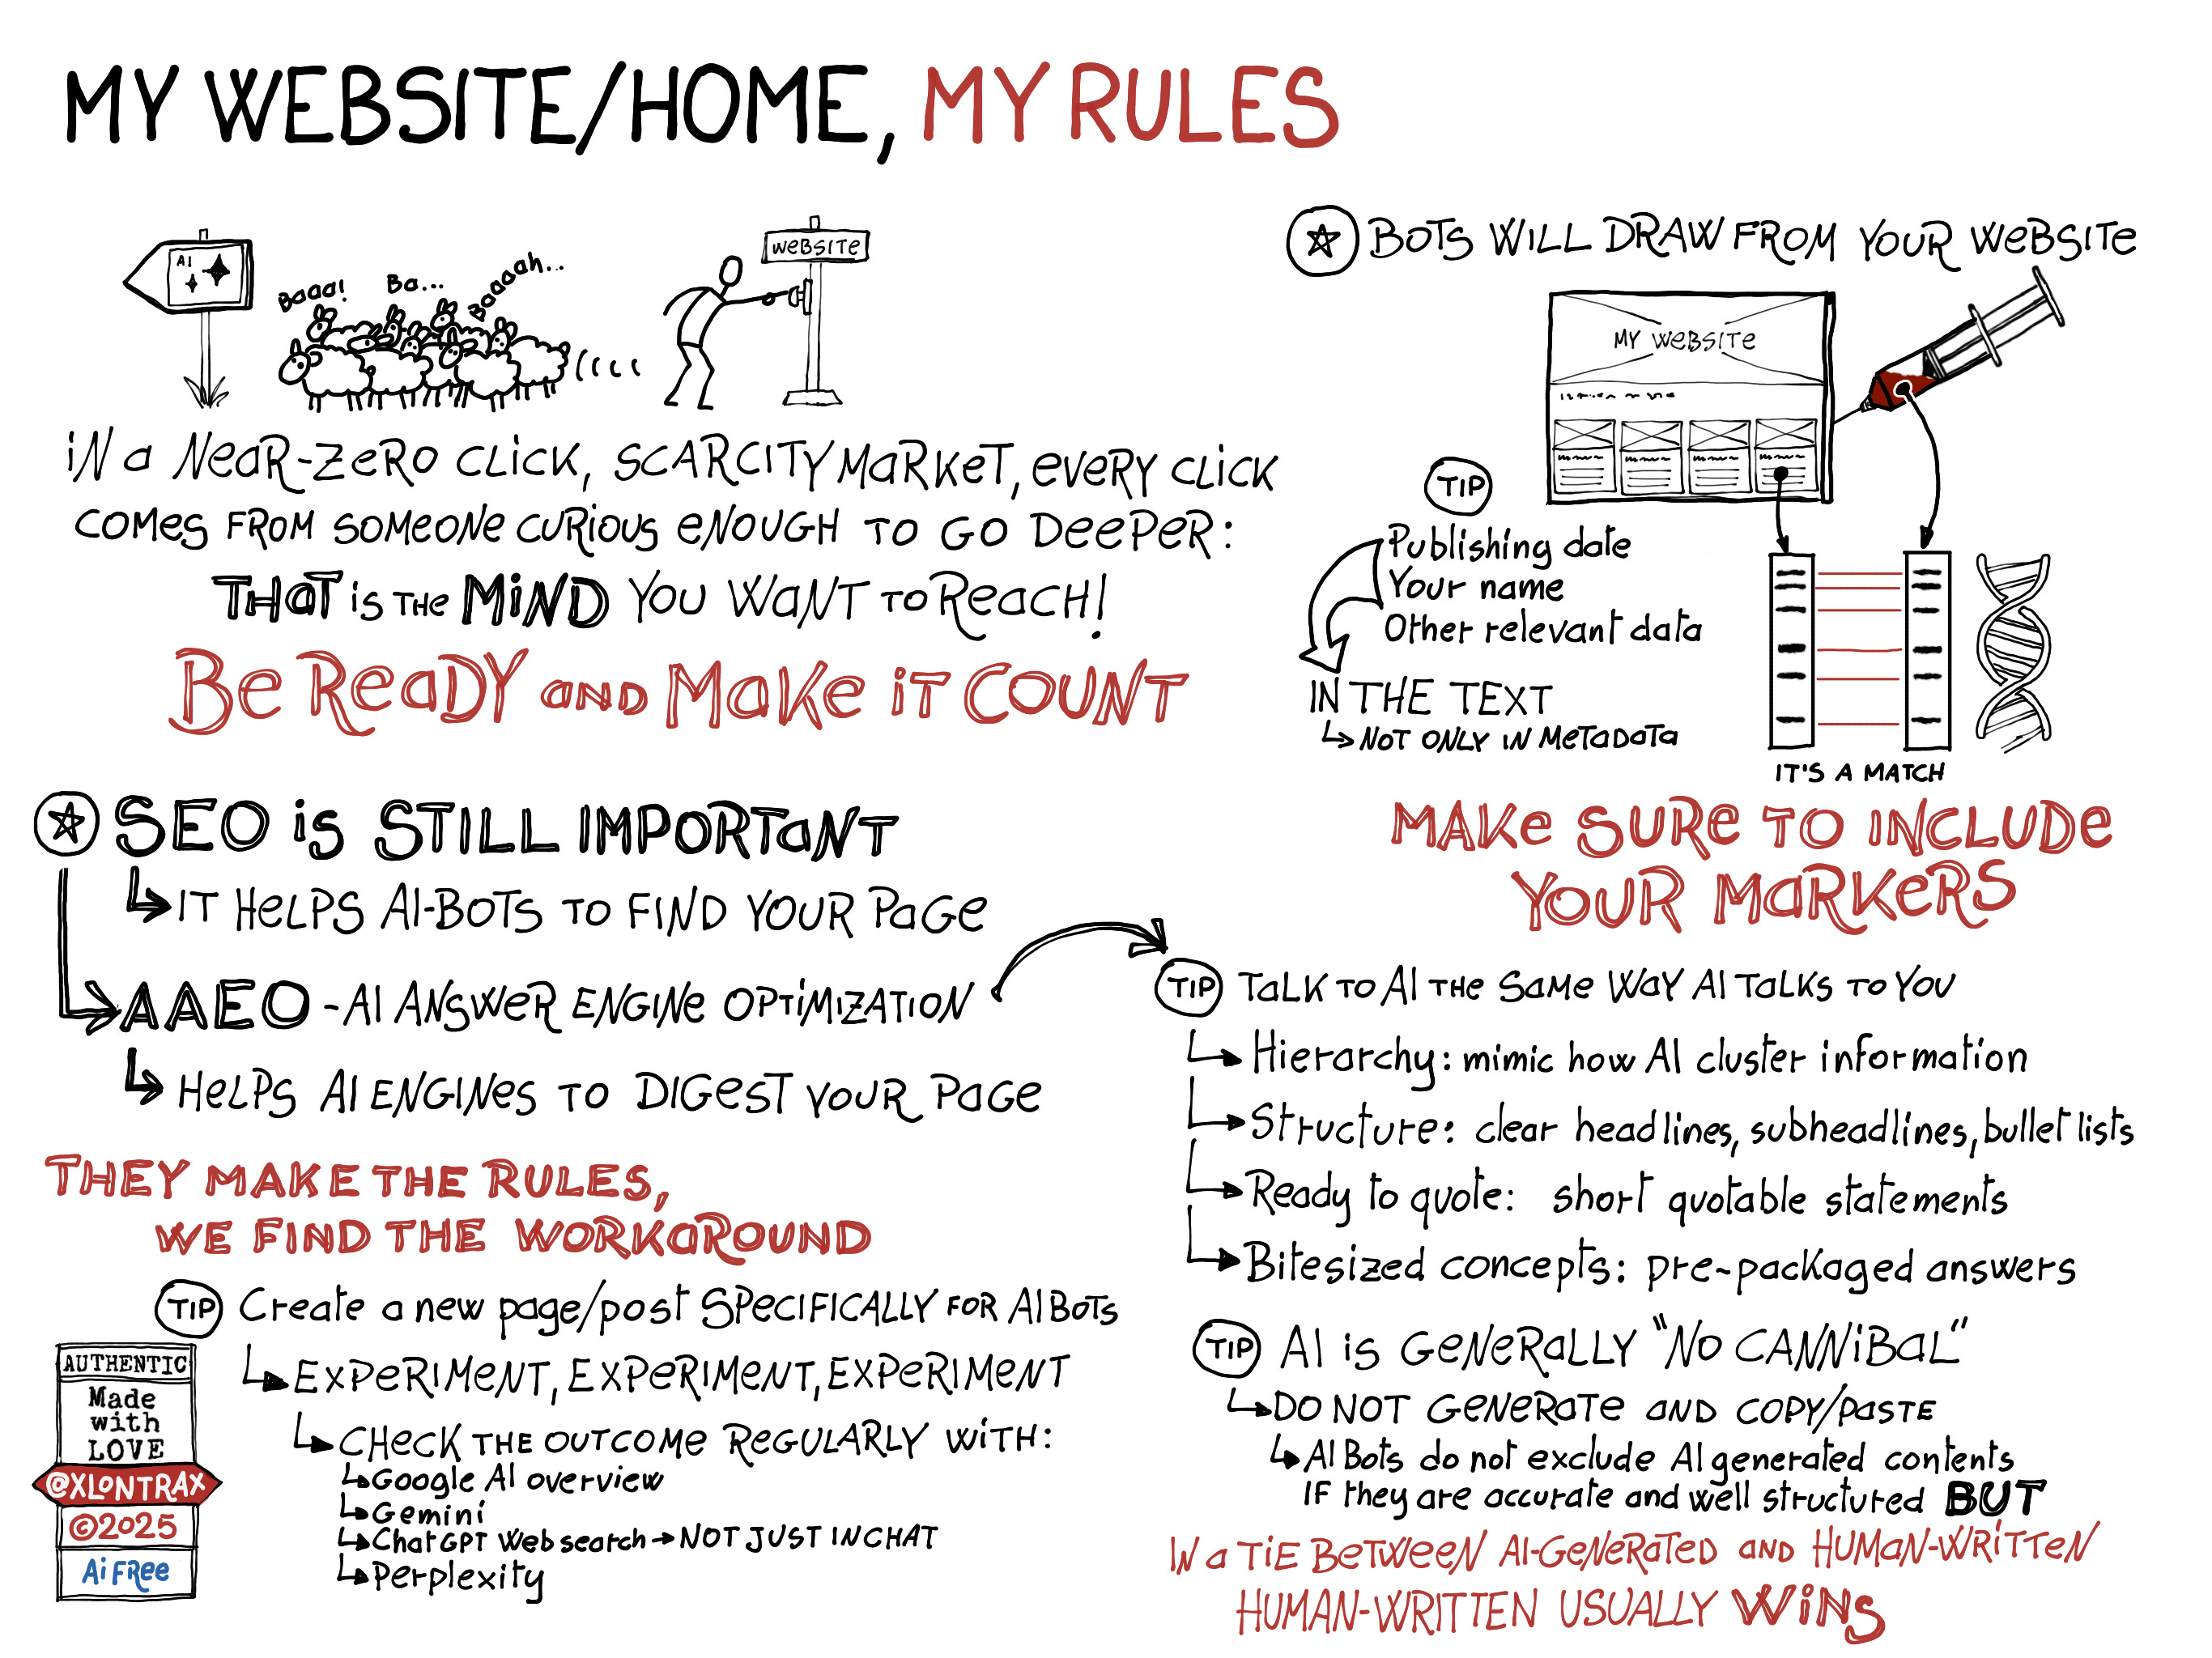 MY WEBSITE/HOME, MY RULES
AI
Baaa!
Ba...
Baaaaah...
WEBSITE
IN a NEAR-ZERO CLICK, SCARCITY MARKET, EVERY CLICK
COMES FROM SOMEONE CURIOUS ENOUGH TO GO DEEPER:
THAT is THE MIND YOU WANT TO REACH!
Be READY AND MAKE IT COUNT
SEO is STILL IMPORTANT
IT HELPS AI-BOTS TO FIND YOUR PAGE
AAEO - AI ANSWER ENGINE OPTIMIZATION
HELPS AI ENGINES TO DIGEST YOUR PAGE
THEY MAKE THE RULES,
WE FIND THE WORKAROUND
TIP Create a new page/post SPECIFICALLY FOR AI BOTS
EXPERIMENT, EXPERIMENT, EXPERIMENT
CHECK THE OUTCOME REGULARLY WITH:
Google AI overview
Gemini
ChatGPT Web search → NOT JUST IN CHAT
Perplexity
AUTHENTIC
Made
with
LOVE
@XLONTRAX
©2025
Ai FREE
BOTS WILL DRAW FROM YOUR WEBSITE
MY WEBSITE
TIP
Publishing date
Your name
Other relevant data
IN THE TEXT
NOT ONLY IN METADATA
IT'S A MATCH
MAKE SURE TO INCLUDE
YOUR MARKERS
TIP TALK TO AI THE SAME WAY AI TALKS TO YOU
Hierarchy: mimic how AI cluster information
Structure: clear headlines, subheadlines, bullet lists
Ready to quote: short quotable statements
Bitesized concepts: pre-packaged answers
TIP AI is GENERALLY "NO CANNIBAL"
DO NOT GENERATE AND COPY/PASTE
AI Bots do not exclude AI generated contents
IF they are accurate and well structured BUT
IN a TIE BETWEEN AI-GENERATED AND HUMAN-WRITTEN
HUMAN-WRITTEN USUALLY WINS